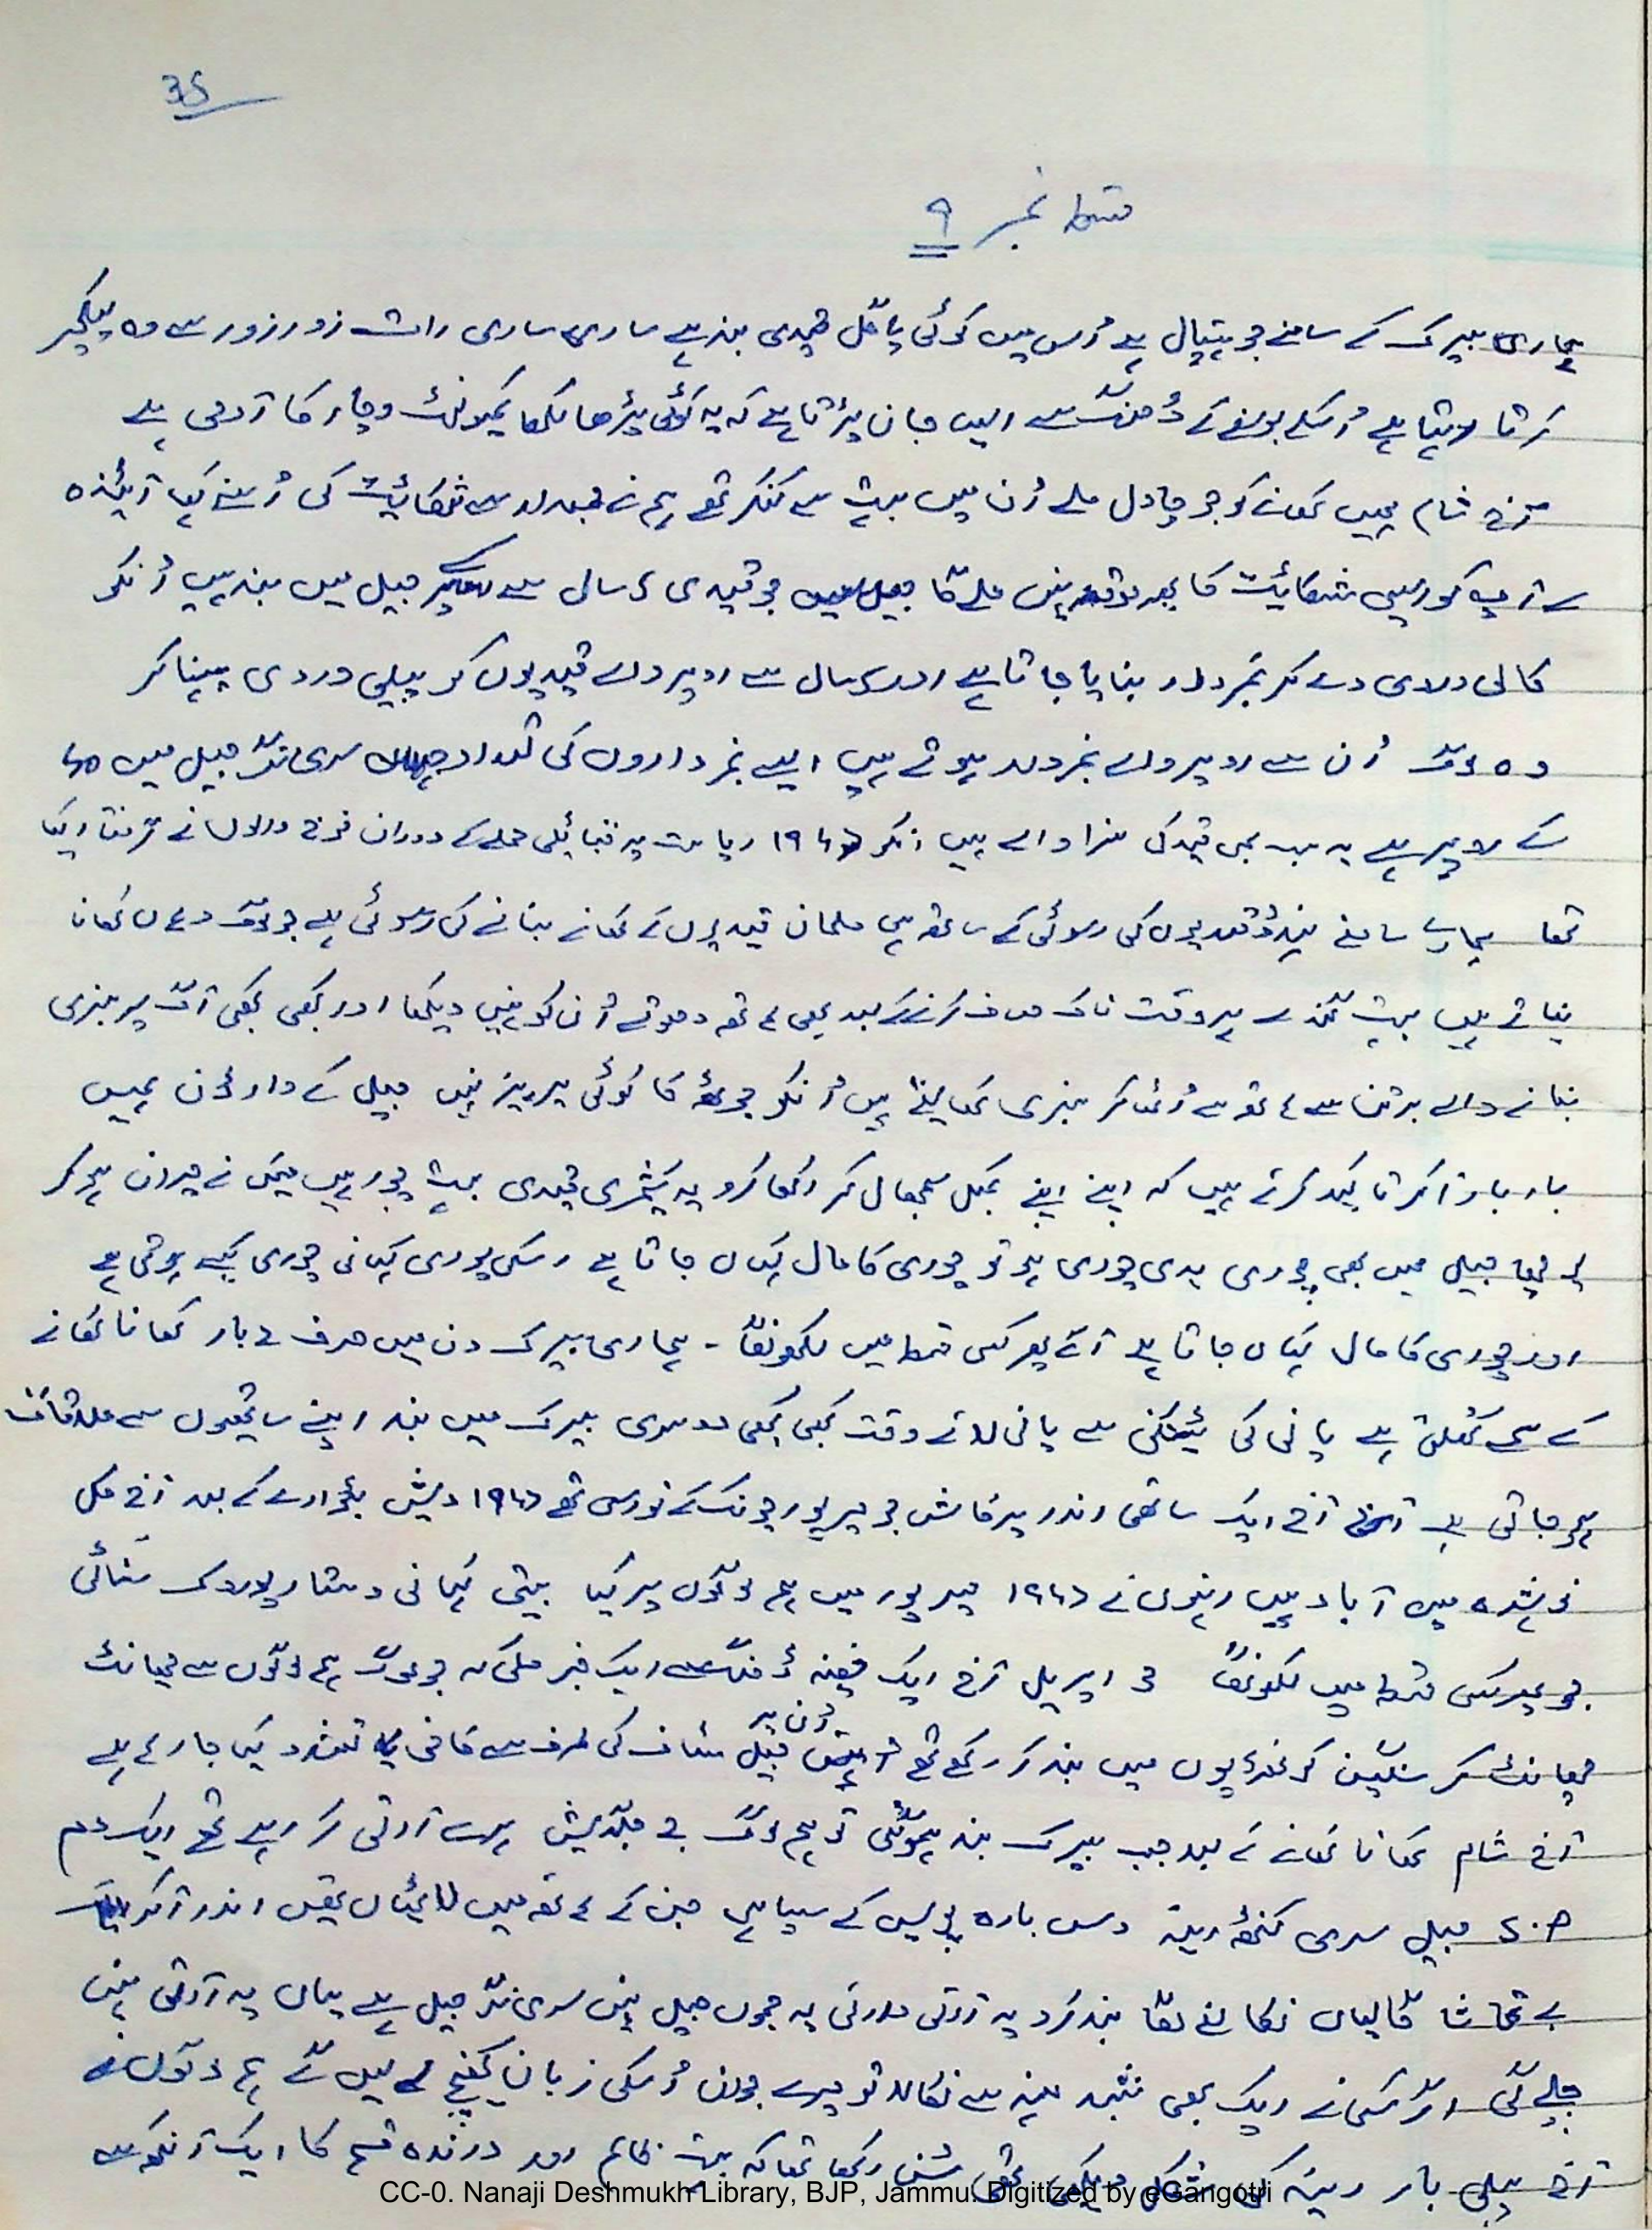 35
قسط نمبر ۹
ہماری بیرک کے سامنے جو ہسپتال ہے اُس میں کوئی پاگل قیدی بند ہے ساری ساری رات زور زور سے وہ لیکچر
کرتا رہتا ہے اُسکے بولنے کے ڈھنگ سے ایسا جان پڑتا ہے کہ یہ کوئی پڑھا لکھا کمیونسٹ وچار کا آدمی ہے
آج شام ہمیں کھانے کو جو چاول ملے اُن میں بہت سے کنکر تھے ہم نے نمبردار سے شکائیت کی اُسنے کہا آئیندہ
سے آپ کو ایسی شکائیت کا پھر موقعہ نہیں ملے گا جیل میں جو قیدی ۵ سال سے جیل میں بند ہیں اُنکو
کالی وردی دے کر نمبردار بنایا جاتا ہے اور سال سے اوپر والے قیدیوں کو پیلی وردی پہنا کر
وہ لوگ اُن سے اوپر والے نمبردار ہوتے ہیں ایسے نمبرداروں کی تعداد سری نگر جیل میں ۵۰
کے اوپر ہے یہ سب عمر قید کی سزا والے ہیں انکو ۱۹۴۷ ریاست پر قبائیلی حملے کے دوران فوج والوں نے گرفتار کیا
تھا ہمارے سامنے ہندُو قیدیوں کی رسوئی کے ساتھ ہی مسلمان قیدیوں کے کھانے بنانے کی رسوئی ہے جو لوگ وہاں کھانا
بناتے ہیں بہت گندے ہر وقت ناک صاف کرنے کے بعد بھی ہاتھ دھوتے اُن کو نہیں دیکھا اور کبھی کبھی آگ پر سبزی
بنانے والے برتن سے ہاتھ سے اُٹھا کر سبزی کھا لیتے ہیں اُنکو جوٹھ کا کوئی پرہیز نہیں جیل کے وارڈن ہمیں
بار بار آکر تاکید کرتے ہیں کہ اپنے اپنے کمبل سمبھال کر رکھا کرو یہ کشمیری قیدی بہت چور ہیں میں نے حیران ہو کر
پوچھا جیل میں بھی چوری ہوتی چوری ہو تو چوری کا مال کہاں جاتا ہے اسکی پوری کہانی چوری کیسے ہوتی ہے
اور چوری کا مال کہاں جاتا ہے آگے پھر کسی قسط میں لکھونگا - ہماری بیرک دن میں صرف ۲ بار کھانا کھانے
کے سمے کُھلتی ہے پانی کی ٹینکی سے پانی لاتے وقت کبھی کبھی دوسری بیرک میں بند اپنے ساتھیوں سے ملاقات
ہو جاتی ہے آج ایک ساتھی اندر پرکاش جو میرپور کے تھے ۱۹۴۷ دیش بٹوارے کے بعد آج کل
نوشہرہ میں آباد ہیں اِنہوں نے ۱۹۴۷ میرپور میں ہم لوگوں پر کیا بیتی کہانی وستار پوروک سُنائی
جو پھر کسی قسط میں لکھونگا اپریل آج ایک خفیہ ڈھنگ سے ایک خبر ملی کہ جو لوگ ہم لوگوں سے چھانٹ
چھانٹ کر سنگین کوٹھڑیوں میں بند کر رکھے تھے اُن پر جیل سٹاف کی طرف سے کافی تشدد کیا جا رہا ہے
آج شام کھانا کھانے کے بعد جب بیرک بند ہو گئی تو ہم لوگ جے جگدیش ہرے آرتی کر رہے تھے ایک دم
جیل سری کنٹھ رینہ دس بارہ پولیس کے سپاہی جن کے ہاتھ میں لاٹھیاں تھیں اندر آکر
بے تحاشا گالیاں نکالنے لگا بند کرو یہ آرتی وارتی یہ جموں جیل نہیں سری نگر جیل ہے یہاں یہ آرتی نہیں
چلے گی اگر کسی نے ایک بھی شبد منہ سے نکالا تو میرے جوان اُسکی زبان کھینچ لیں گے ہم لوگوں نے
آج پہلی بار رینہ کی شکل دیکھی تھی سُن رکھا تھا کہ بہت ظالم اور درندہ قسم کا ایک آنکھ سے
CC-0. Nanaji Deshmukh Library, BJP, Jammu. Digitized by eGangotri